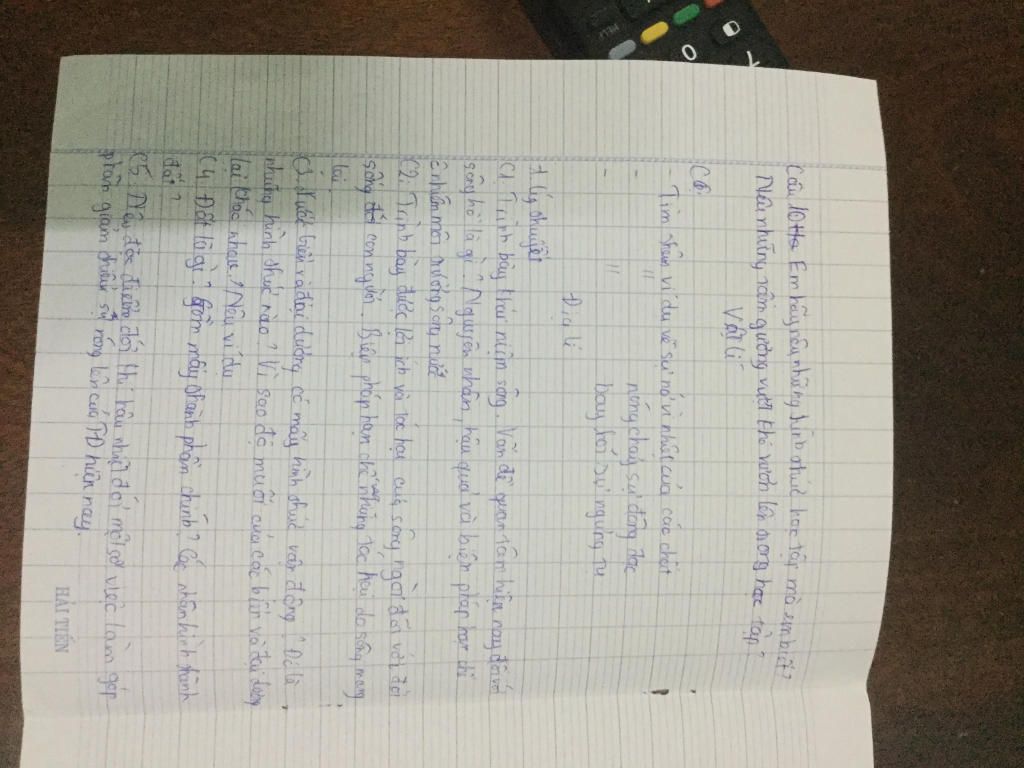 Câu 10 Em hãy nêu những hình thức học tập mà em biết?
Nêu những tấm gương vượt khó vươn lên trong học tập?
Vật lí
C6:
- Tìm thêm ví dụ về sự nở vì nhiệt của các chất
- " nóng chảy sự đông đặc
- " bay hơi sự ngưng tụ
Địa lí
A lý thuyết
C1: Trình bày khái niệm sông. Vấn đề quan tâm hiện nay đối với
sông hồ là gì? Nguyên nhân, hậu quả và biện pháp hạn chế
ô nhiễm môi trường sông nước
C2: Trình bày được lợi ích và tác hại của sông ngòi đối với đời
sống con người. Biện pháp hạn chế những tác hại do sông mang
lại
C3 Nước biển và đại dương có mấy hình thức vận động? Đó là
những hình thức nào? Vì sao độ muối của các biển và đại dương
lại khác nhau? Nêu ví dụ
C4 Đất là gì? Gồm mấy thành phần chính? Các nhân hình thành
đất?
C5: Nêu đặc điểm đới khí hậu nhiệt đới một số việc làm góp
phần giảm thiểu sự nóng lên của TĐ hiện nay.
HẢI TIẾN
HELP
0